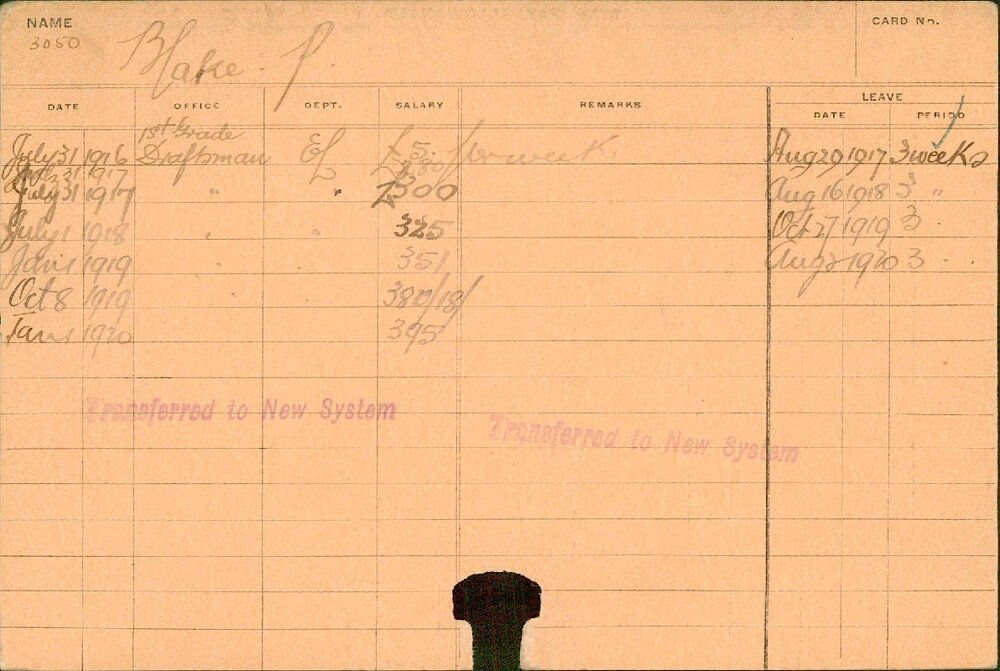 NAME CARD No.
3050 Blake. P.
LEAVE
DATE OFFICE DEPT. SALARY REMARKS DATE PERIOD
1st Grade
July 31 1916 Draftsman EL £5. per week Aug 29 1917 3 weeks
July 31 1917 " " £300 Aug 16 1918 3 "
July 1 1918 " " 325 Oct 27 1919 3 "
Jan 1 1919 " 351 Aug 2 1920 3 " "
Oct 8 1919 380/18/
Jan 1 1920 395
Transferred to New System
Transferred to New System